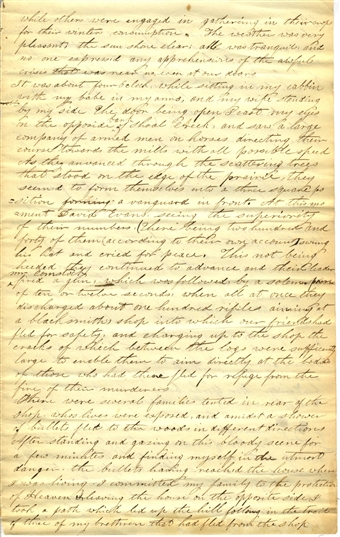 while others were engaged in gathering in their crops
for their winter consumption. The weather was very
pleasant the sun shone clear, all was tranquil, and
no one expressed any apprehensions of the awful
crisis that was near us, even at our doors
It was about four oclock, while sitting in my cabbin
with my babe in my arms, and my wife standing
by my side the door being open I cast my eyes
on the opposite bank of Shoal Creek, and saw a large
company of armed men on horses directing their
course towards the mills with all possible speed
As they advanced through the scattering trees
that stood on the edge of the prairie they
seemed to form themselves into a three square po
sition forming a vanguard in front. At this mo
ment David Evans, seeing the superiority
of their numbers (there being two hundred and
forty of them according to their own account) swung
his hat and cried for peace. This not being
heeded they continued to advance and their leader
fired a gun, which was followed by a solemn pause
of ten or twelve seconds, when all at once they
discharged about one hundred rifles aiming at
a blacksmiths shop into which our friends had
fled for safety, and charging up to the shop the
cracks of which between the logs were sufficiently
large to enable them to aim directly at the bodies
of those who had there fled for refuge from the
fire of their murderers
There were several families tented in rear of the
shop, whose lives were exposed, and amidst a shower
of bullets fled to the woods in different directions
After standing and gazing on this bloody scene for
a few minutes and finding myself in the utmost
danger the bullets having reached the house where
I was living I committed my family to the protection
of Heaven & leaving the house on the opposite side I
took a path which led up the hill following in the trail
of three of my brethren that had fled from the shop